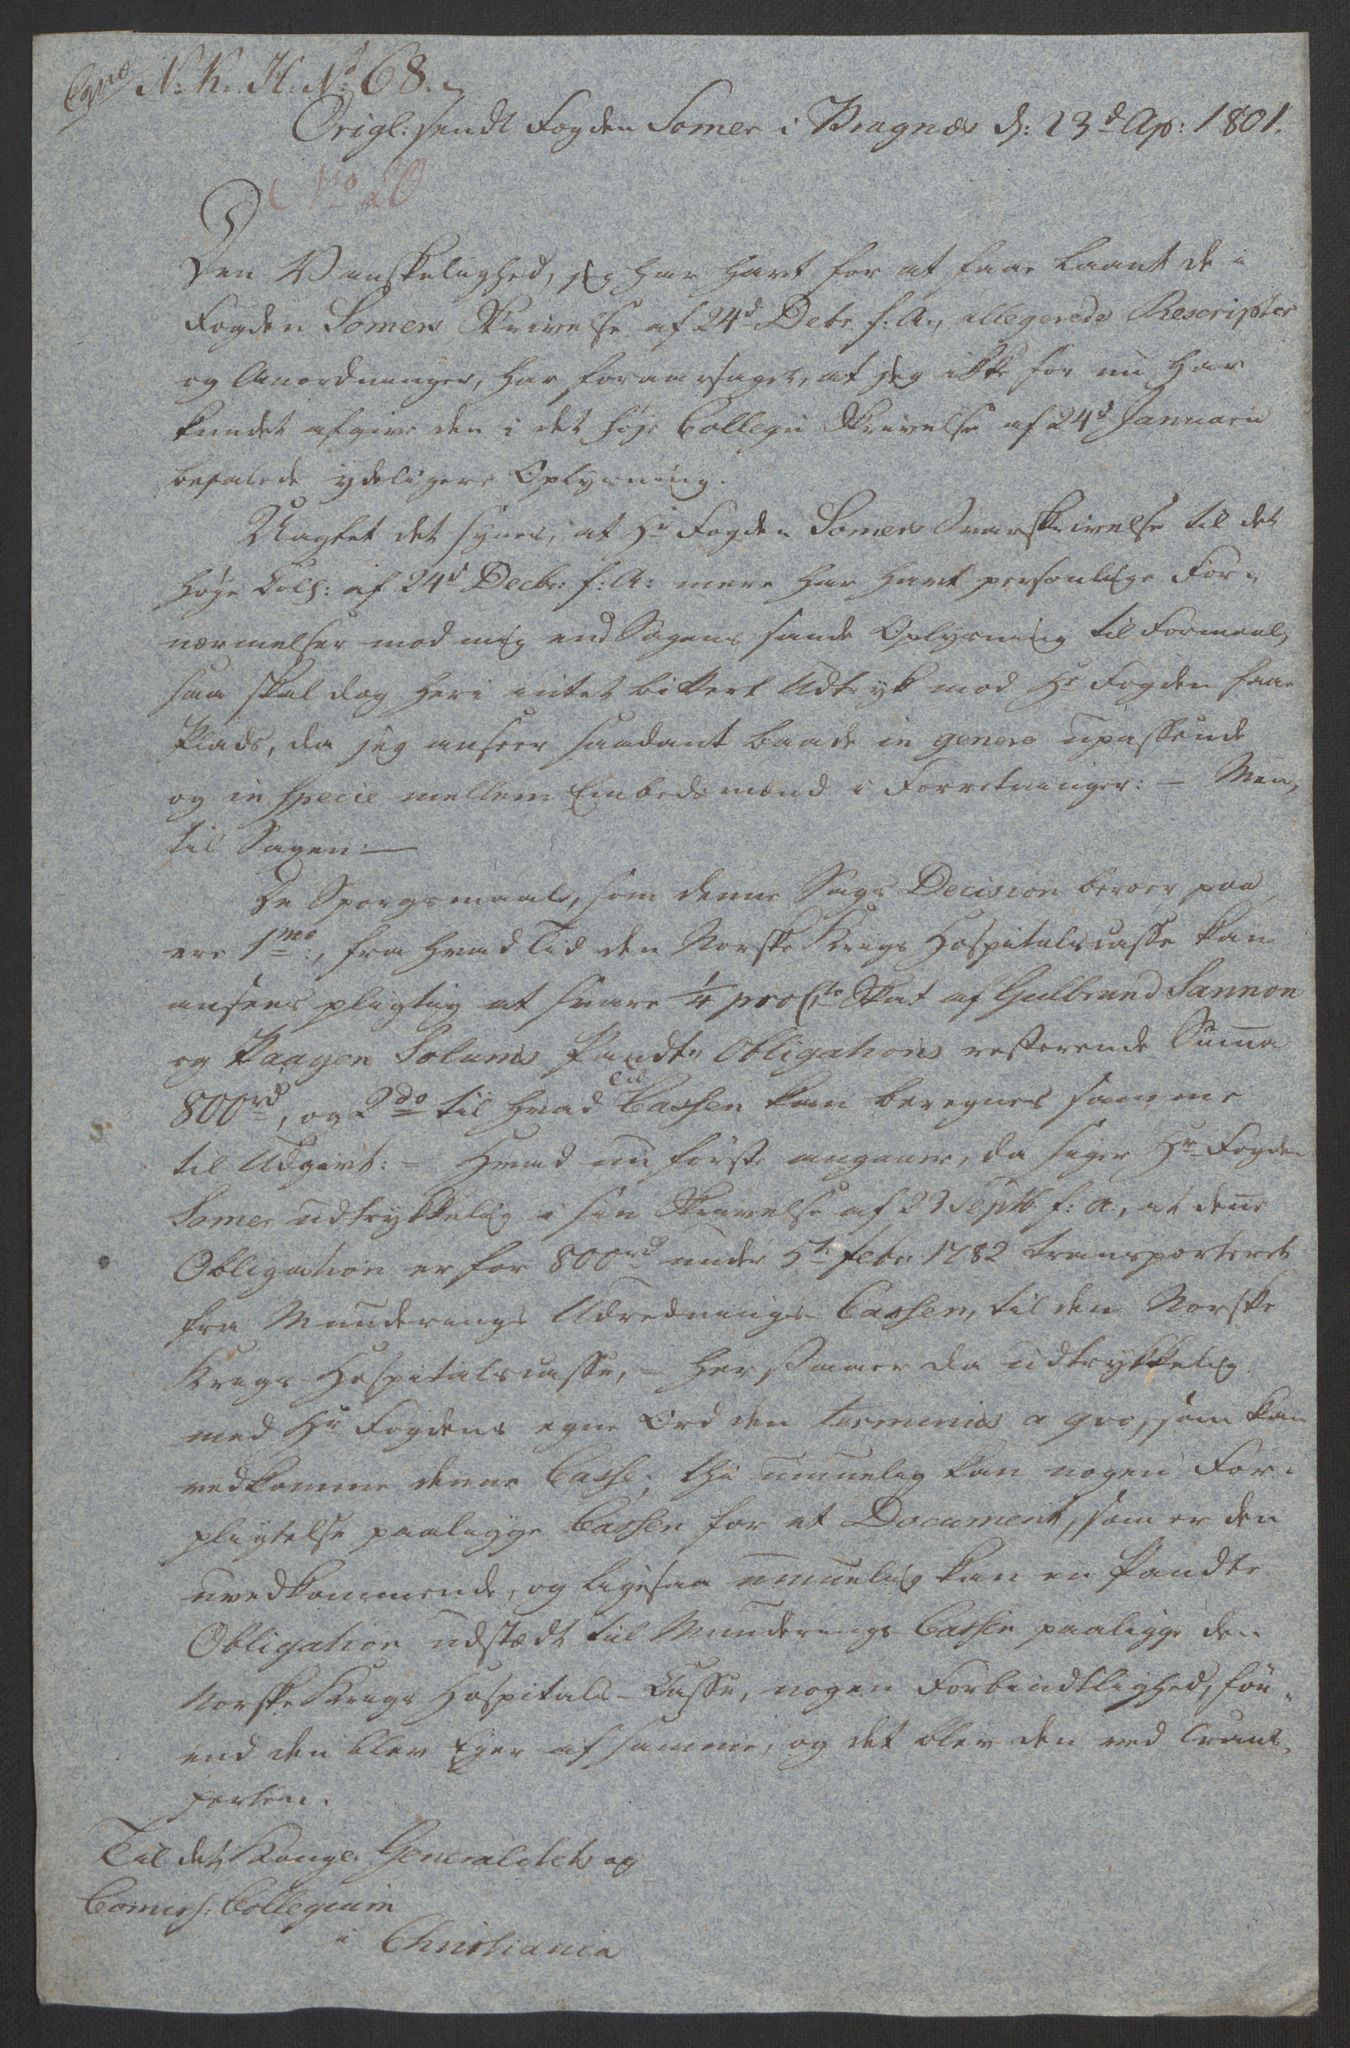 Copie N. K. H. No 68.
Origl: sendt Fogden Somer i Bragnæs d: 23d Ap: 1801.
No 20
Den Vanskelighed, jeg har havt for at faae laant de i
Fogden Somers Skrivelse af 24d Debr. f: A:, allegerede Rescripter
og Anordninger, har foraarsaget, at jeg ikke før nu har
kundet afgive den i det høje Collegii Skrivelse af 24d Januarii
befalede ydeligere Oplysning.
Uagtet det synes, at Hr Fogden Somers Svarskrivelse til det
høje Coll: af 24d Decbr: f: A: mere har havt personlige For-
nærmelser mod mig end Sagens sande Oplysning til Formaal,
saa skal dog heri intet bittert Udtryk mod Hr Fogden faae
Plads, da jeg anseer saadant baade in genere upassende
og in specie mellem Embedsmænd i Forretninger: - Men,
til Sagen: -
De Spørgsmaale, som denne Sags Decision beroer paa,
ere 1mo:, fra hvad Tid den Norske Krigs Hospitalscasse kan
ansees pligtig at svare 1/4 pro Cto Skat af Gulbrand Sannon
og Paagen Solums Pandte Obligations resterende Summa
800rd, og 2do til hvad Tid Cassen kan beregnes samme
til Udgivt: - Hvad nu første angaaer, da siger Hr Fogden
Somer udtrykkelig i sin Skrivelse af 23 Septb. f: a:, at denne
Obligation er for 800rd under 5te Febr. 1782 transporteret
fra Munderings Udrednings Cassen, til den Norske
Krigs Hospitalscasse, - her staaer da udtrykkelig
med Hr Fogdens egne Ord den terminus a qvo, som kan
vedkomme denne Casse; thi umuelig kan nogen For-
pligtelse paaligge Cassen for et Document, som er den
uvedkommende, og ligesaa umuelig kan en Pandte
Obligation udstædt til Munderings Cassen paaligge den
Norske Krigs Hospitals-Casse, nogen Forbindtlighed, før-
end den blev Ejer af samme, og det blev den ved Trans-
porten.
Til det Kongl. Generalitets og
Comiss: Collegium
i Christiania